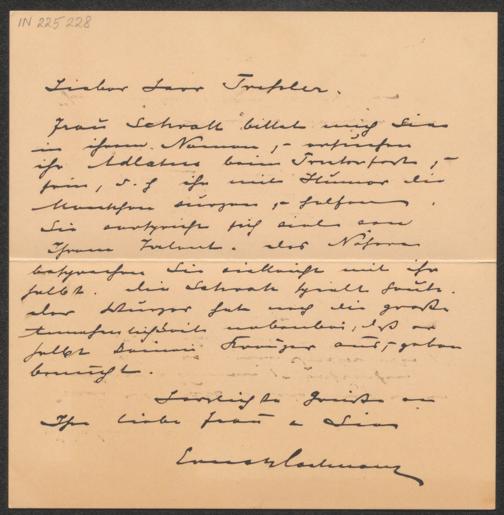 IN 225 228
Lieber Herr Treßler.
Frau Schratt bittet mich Sie
in ihrem Namen, - ersuchen
ihr Adlatus beim Theaterfeste, -
sein, d. h ihr mit Humor die
Menschen wurzen, - helfen.
Sie verspricht sich viel von
Ihrem Talent. Das Nähere
besprechen Sie vielleicht mit ihr
selbst. Die Schratt spielt heute.
Der Wurzer hat noch die große
Annehmlichkeit nebenbei, daß er
selbst keinen Kreuzer aus, - geben
braucht.
Herzlichste Grüße an
Ihre liebe Frau u Sie